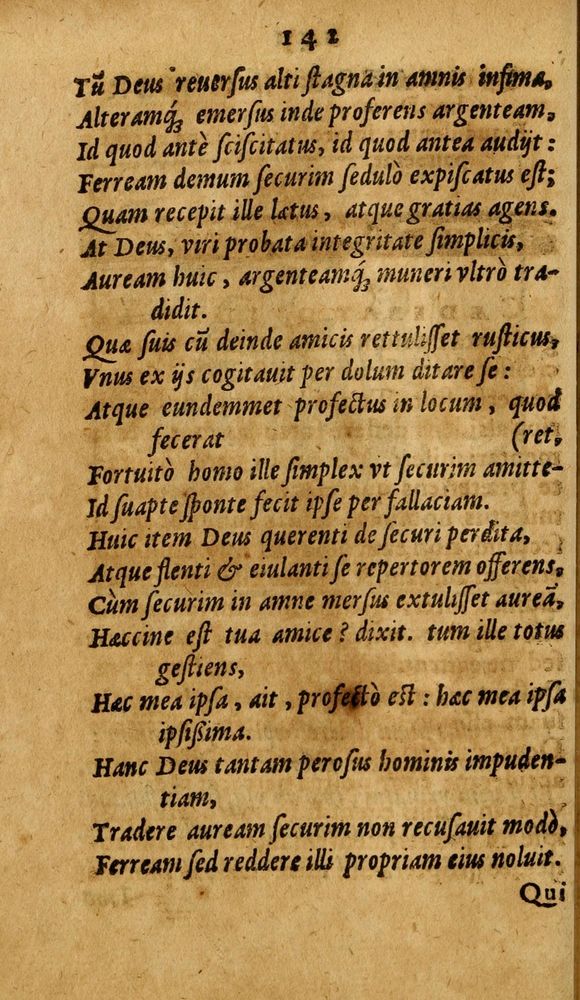 142
Tū Deus reuersus alti ſtagna in amnis infima,
Alteramq́ꝫ emersus inde proferens argenteam,
Id quod antè ſciſcitatus, id quod antea audijt:
Ferream demum ſecurim ſedulò expiſcatus eſt;
Quam recepit ille lætus, atque gratias agens.
At Deus, viri probata integritate ſimplicis,
Auream huic, argenteamq́ꝫ muneri vltrò tra-
didit.
Quæ ſuis cū deinde amicis rettuliſſet ruſticus,
Vnus ex ijs cogitauit per dolum ditare ſe:
Atque eundemmet profectus in locum, quod
fecerat (ret,
Fortuitò homo ille ſimplex vt ſecurim amitte-
Id ſuapte ſponte fecit ipſe per fallaciam.
Huic item Deus querenti de ſecuri perdita,
Atque flenti & eiulanti ſe repertorem offerens,
Cùm ſecurim in amne merſus extuliſſet aureā,
Hæccine eſt tua amice? dixit. tum ille totus
geſtiens,
Hæc mea ipſa, ait, profectò eſt: hæc mea ipſa
ipſißima.
Hanc Deus tantam peroſus hominis impuden-
tiam,
Tradere auream ſecurim non recuſauit modò,
Ferream ſed reddere illi propriam eius noluit.
Qui